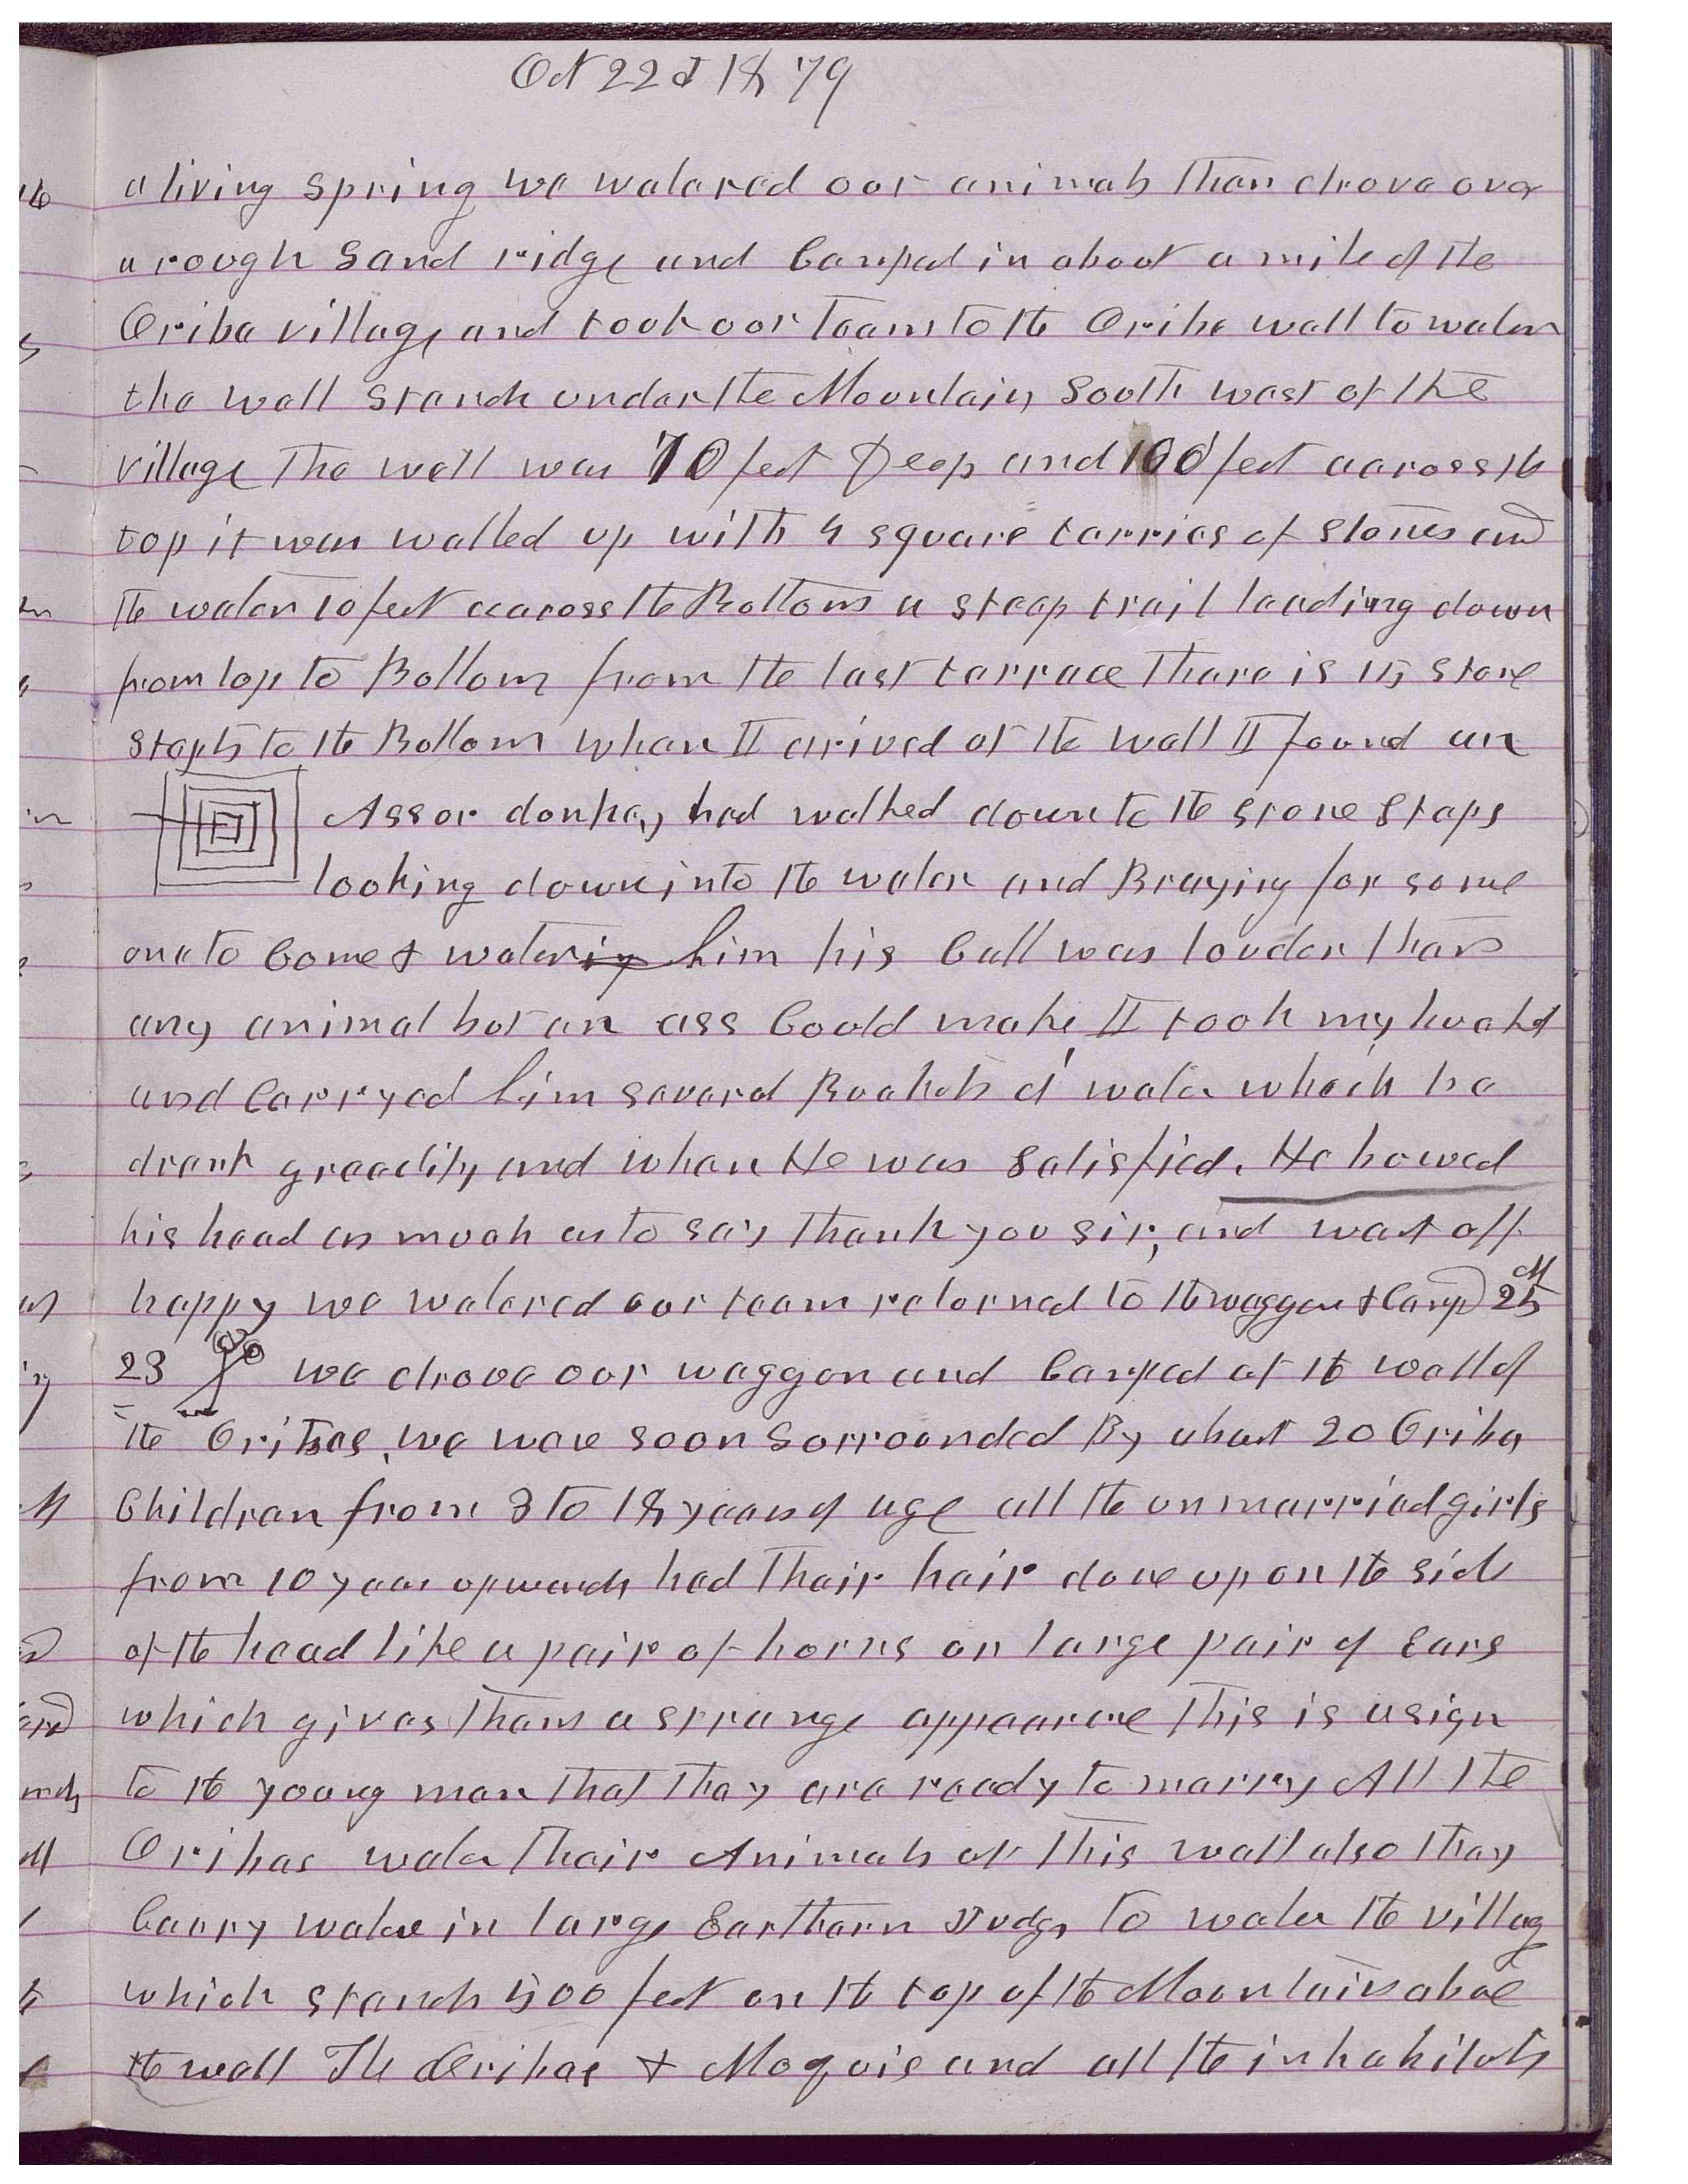 Oct 22d 1879
a living spring we watered our animals then drove over
a rough Sand ridge and Camped in about a mile of the
Oriba village and took our Teams to the Oriba well to water
the well Stands under the Mountain South west of the
village The well was 70 feet Deep and 100 feet aacross the
top it was walled up with 4 square tarries of Stones and
the water 10 feet aacross the Bottom a steep trail leading down
from top to Bottom from the last terrace there is 15 stone
Stepts to the Bottom when II arived at the well II found an
Ass or donkey had walked down to the stone steps
looking down into the water and Braying for some
one to Come & watering him his Call was louder than
any animal but an ass Could make II took my bucket
and Carryed him several Buckets of water which he
drank greedily and when He was Satisfied. He bowed
his head as much as to say Thank you sir, and went off
happy we watered our team returned to the waggon & Camp 25 M
23 we drove our waggon and Camped at the well of
the Oribes, we were soon Sorrounded By about 20 Oriba
Children from 3 to 18 years of age all the unmarried girls
from 10 years upwards had their hair done up on the side
of the head like a pair of horns or large pair of Ears
which gives them a strange appearance This is a sign
to the young men that they are ready to marry All the
Oribas water their Animals at this well also they
Carry water in large Earthern Judgs to water the villag
which stands 500 feet on the top of the Mountain above
the well The Oribas & Moquis and all the inhabitats